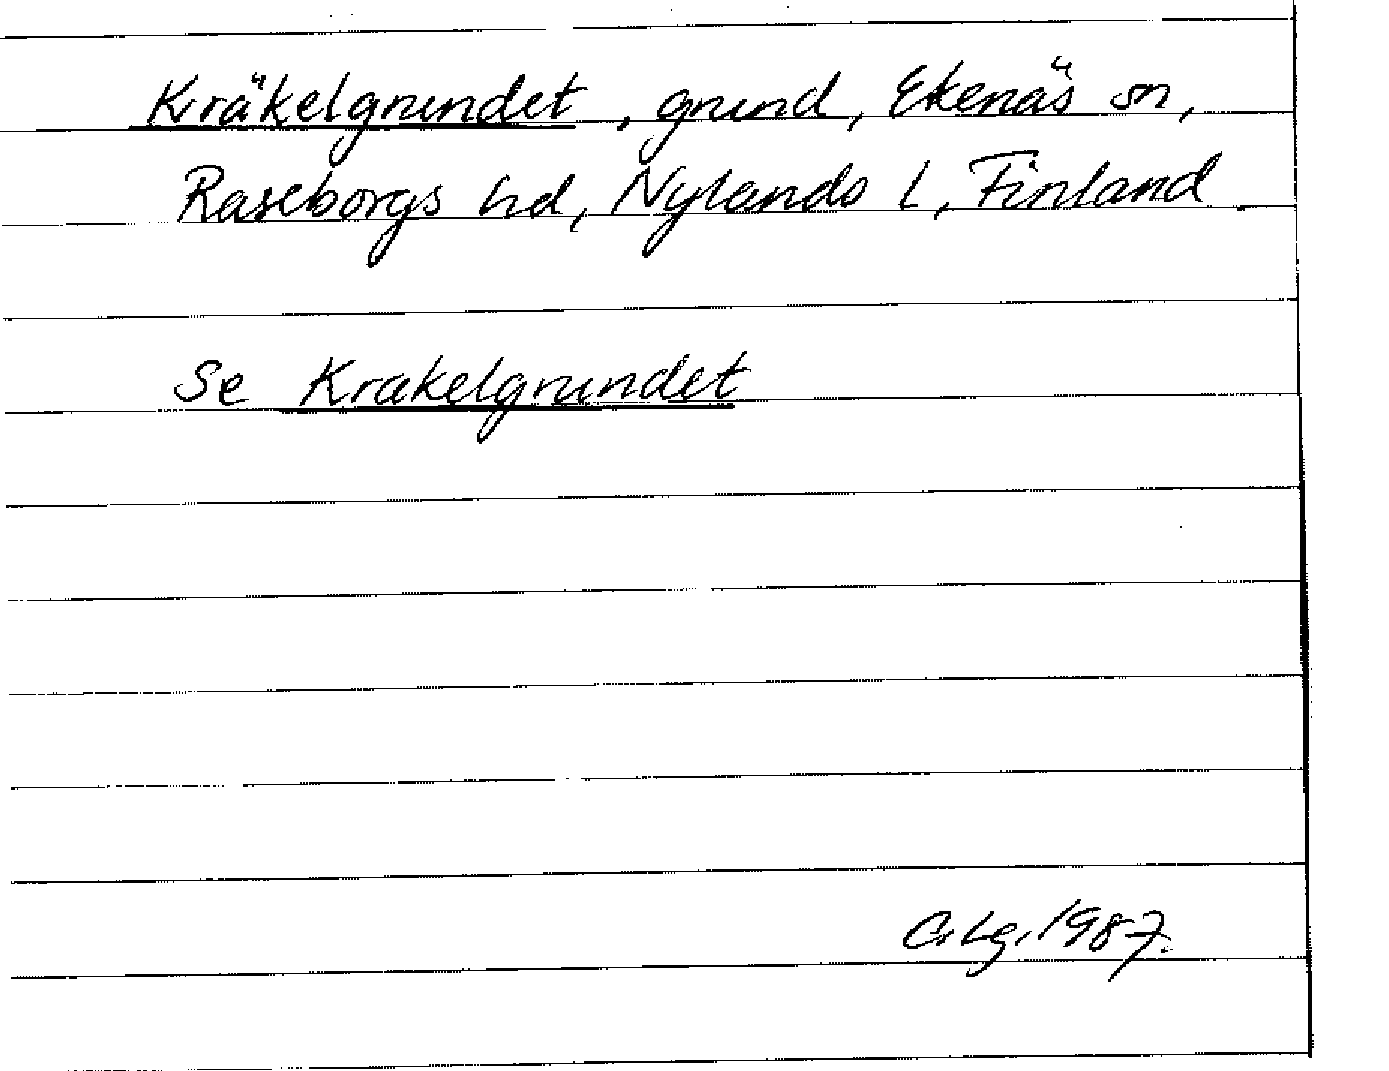 Kräkelgrundet, grund, Ekenäs sn,
Raseborgs hd, Nylands l, Finland
Se Krakelgrundet
C. Lg. 1987.